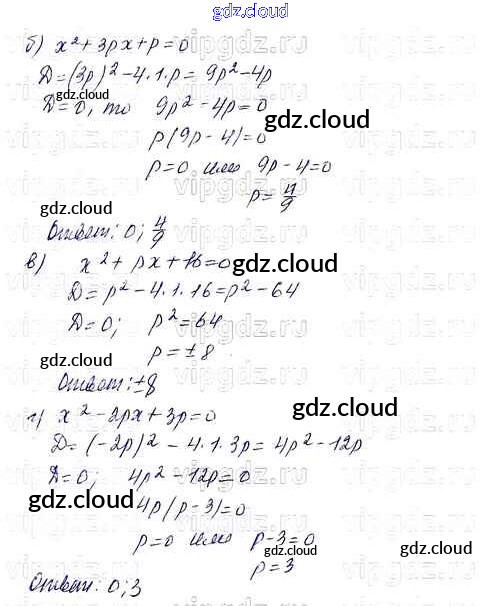 gdz.cloud
б) x² + 3px + p = 0
D = (3p)² - 4·1·p = 9p² - 4p
D = 0, то 9p² - 4p = 0
gdz.cloud
p(9p - 4) = 0
p = 0 или 9p - 4 = 0
p = 4/9
gdz.cloud
Ответ: 0; 4/9
в) x² + px + 16 = 0
gdz.cloud
D = p² - 4·1·16 = p² - 64
D = 0; p² = 64
p = ± 8
gdz.cloud
Ответ: ±8
gdz.cloud
г) x² - 2px + 3p = 0
D = (-2p)² - 4·1·3p = 4p² - 12p
D = 0; 4p² - 12p = 0
gdz.cloud
4p(p - 3) = 0
gdz.cloud
p = 0 или p - 3 = 0
gdz.cloud
p = 3
Ответ: 0; 3
gdz.cloud